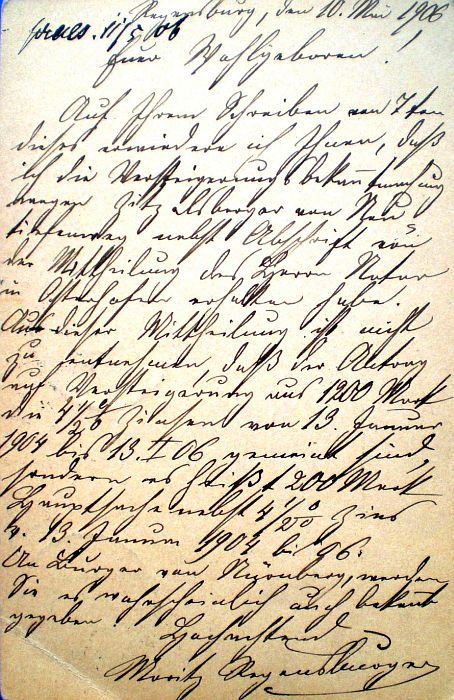 Regensburg, den 10. Mai 1906
praes. 11/5 06
Euer Wohlgeboren!
Auf Ihrem Schreiben von 7ten
dieses erwiedere ich Ihnen, daß
ich die Versteigerungsbekanntmachung
wegen Zitzelsberger von Neu
tiefenweg nebst Abschrift von
der Mittheilung des Herrn Notar
in Osterhofen erhalten habe.
Aus dieser Mittheilung ist nicht
zu entnehmen, daß der Antrag
auf Versteigerung aus 1200 Mark
die 4 1/2 % Zinsen von 13. Januar
1904 bis 13. I 06 gemeint sind,
sondern es heißt 1200 Mark
Hauptsache nebst 4 1/2 % Zins
v. 13. Januar 1904 bis 96.
An Burger von Nürnberg, werden
Sie es wahrscheinlich auch bekannt
gegeben
Hochachtend
Moritz Regensburger